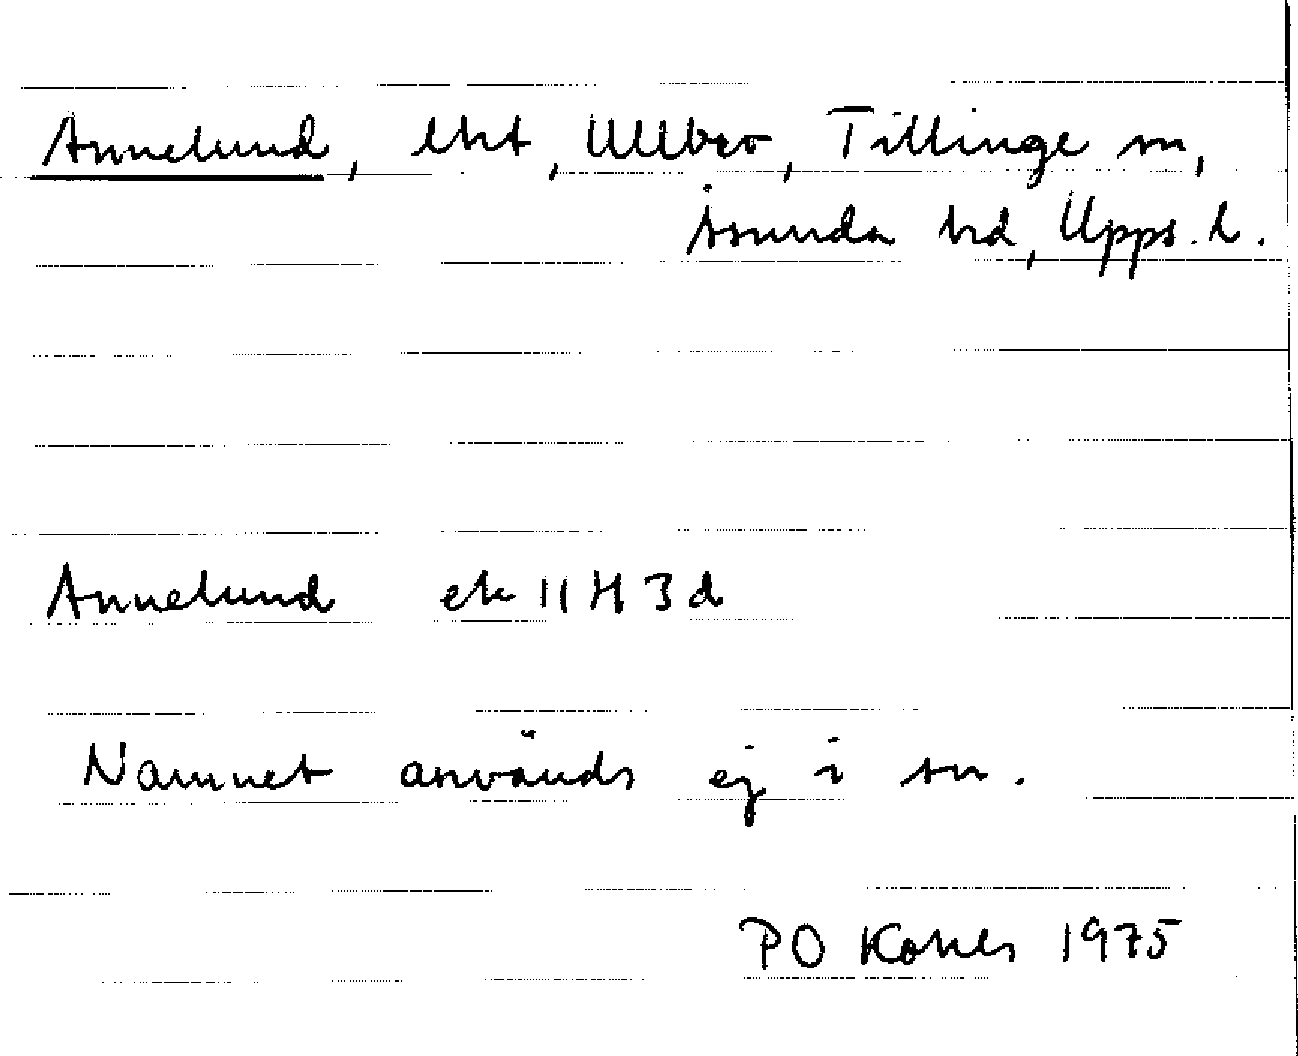 Annelund, lht, Ullbro, Tillinge sn,
Åsunda hd, Upps. l.
Annelund ek 11 H 3 d
Namnet används ej i sn.
PO 1975